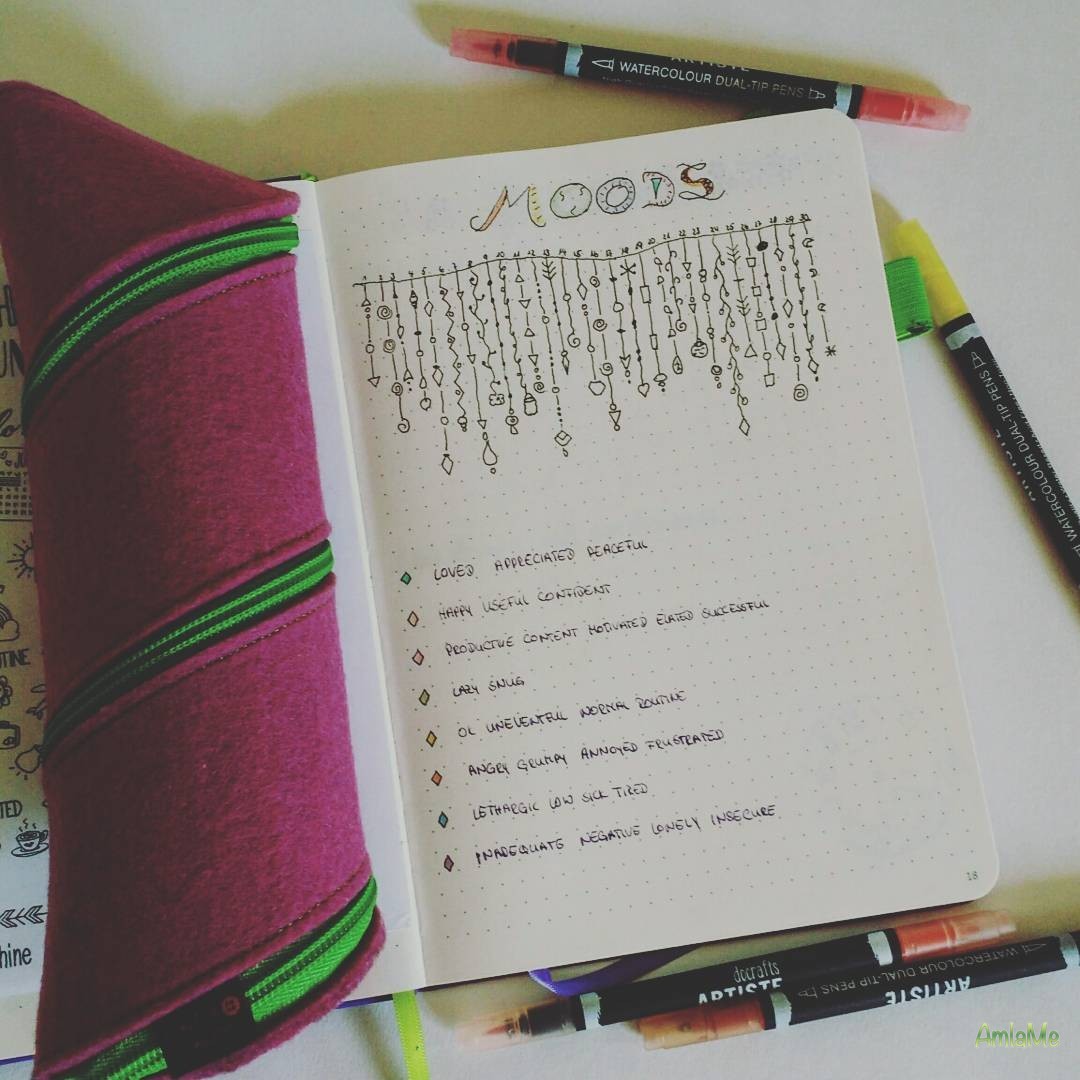 ARTISTE
WATERCOLOUR DUAL-TIP PENS
MOODS
1 2 3 4 5 6 7 8 9 10 11 12 13 14 15 16 17 18 19 20 21 22 23 24 25 26 27 28 29 30
WATERCOLOUR DUAL-TIP PENS
LOVED APPRECIATED PEACEFUL
HAPPY USEFUL CONFIDENT
PRODUCTIVE CONTENT MOTIVATED ELATED SUCCESSFUL
LAZY SNUG
OK UNEVENTFUL NORMAL ROUTINE
ANGRY GRUMPY ANNOYED FRUSTRATED
LETHARGIC LOW SICK TIRED
INADEQUATE NEGATIVE LONELY INSECURE
18
docrafts
ARTISTE
WATERCOLOUR DUAL-TIP PENS
ARTISTE
AmlaMe